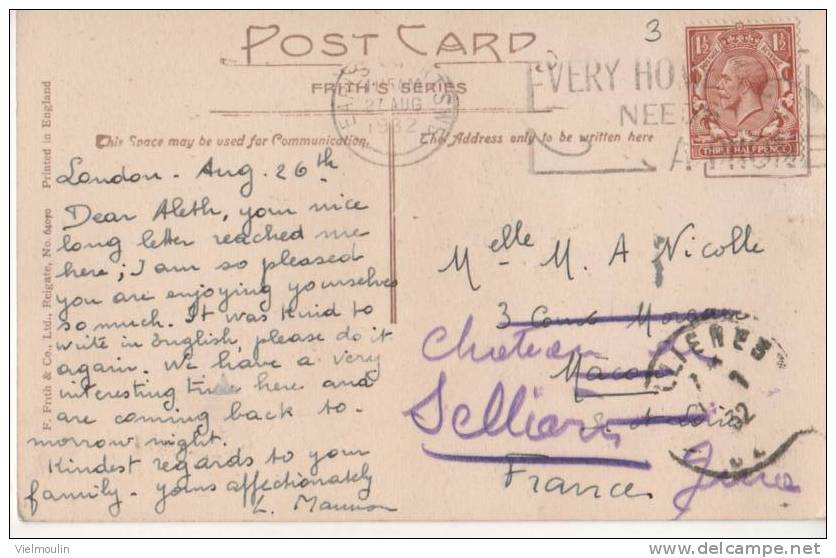 POST CARD
FRITH'S SERIES
This Space may be used for Communication.
The Address only to be written here
3
1½ 1½
THREE HALFPENCE
27 AUG
1932
EVERY HO
NEE
A
F. Frith & Co., Ltd., Reigate, No. 64070 Printed in England
London - Aug. 26th
Dear Aleth, your nice
long letter reached me
here; I am so pleased
you are enjoying yourselves
so much. It was kind to
write in English, please do it
again. We have a very
interesting time here and
are coming back to-
morrow night.
Kindest regards to your
family - yours affectionately
Melle M. A Nicolle
3
Macon
France
Chateau de
Sellières
Jura
32
Vielmoulin
delcampe.net